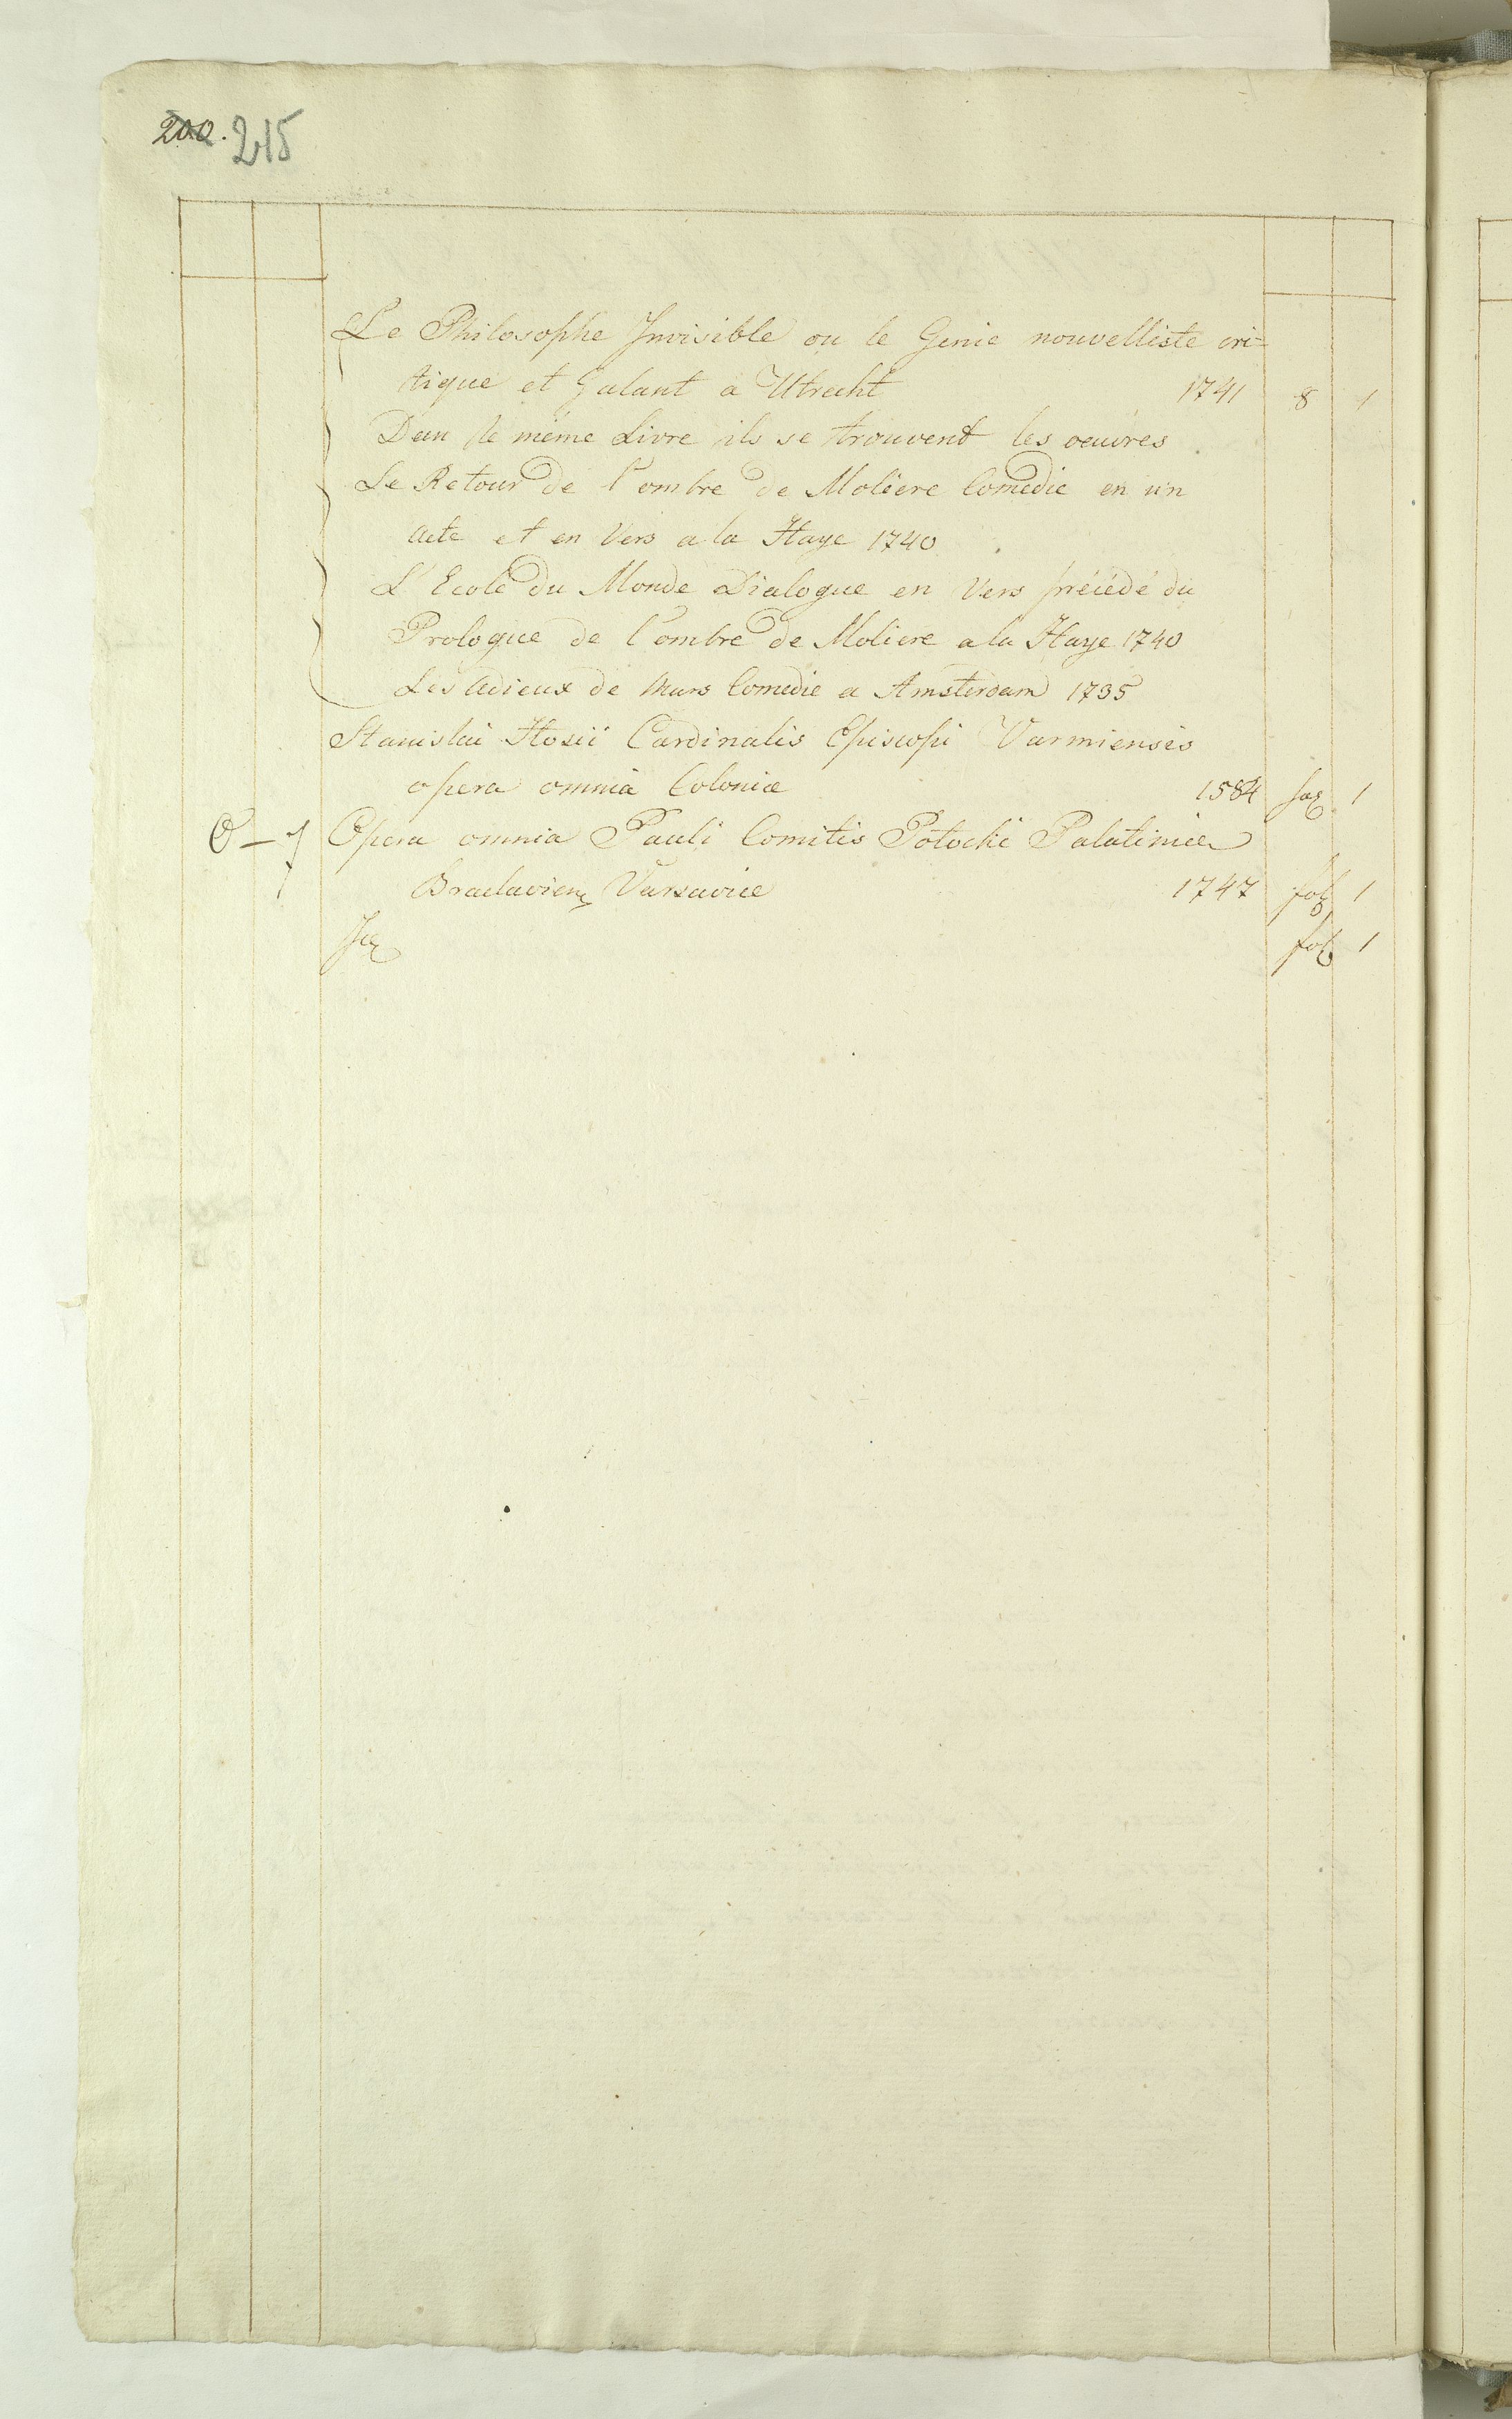 200. 215
Le Philosophe Invisible ou le Genie nouvelliste cri=
tique et Galant a Utrecht 1741 8 1
Dan le même Livre ils se trouvent les oeuvres
Le Retour de l'ombre de Moliere Comedie en un
Acte et en Vers a la Haye 1740
L'Ecole du Monde Dialogue en Vers précédé du
Prologue de l'ombre de Moliere a la Haye 1740
Les Adieux de Mars Comedie a Amsterdam 1735
Stanislai Hosii Cardinalis Episcopi Varmiensis
opera omnia Coloniæ 1584 fol 1
O – 7 Opera omnia Pauli Comitis Potocki Palatinia
Braclavien Varsaviæ 1747 fol 1
fol 1